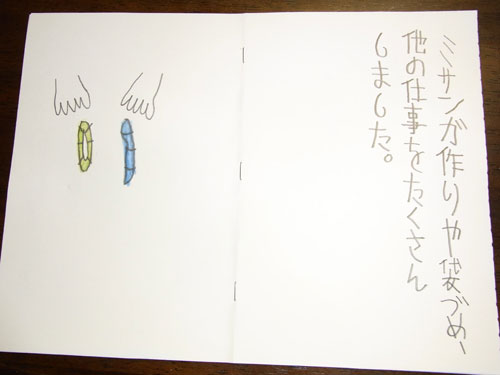 ミサンガ作りや袋づめ、
他の仕事をたくさん
しました。